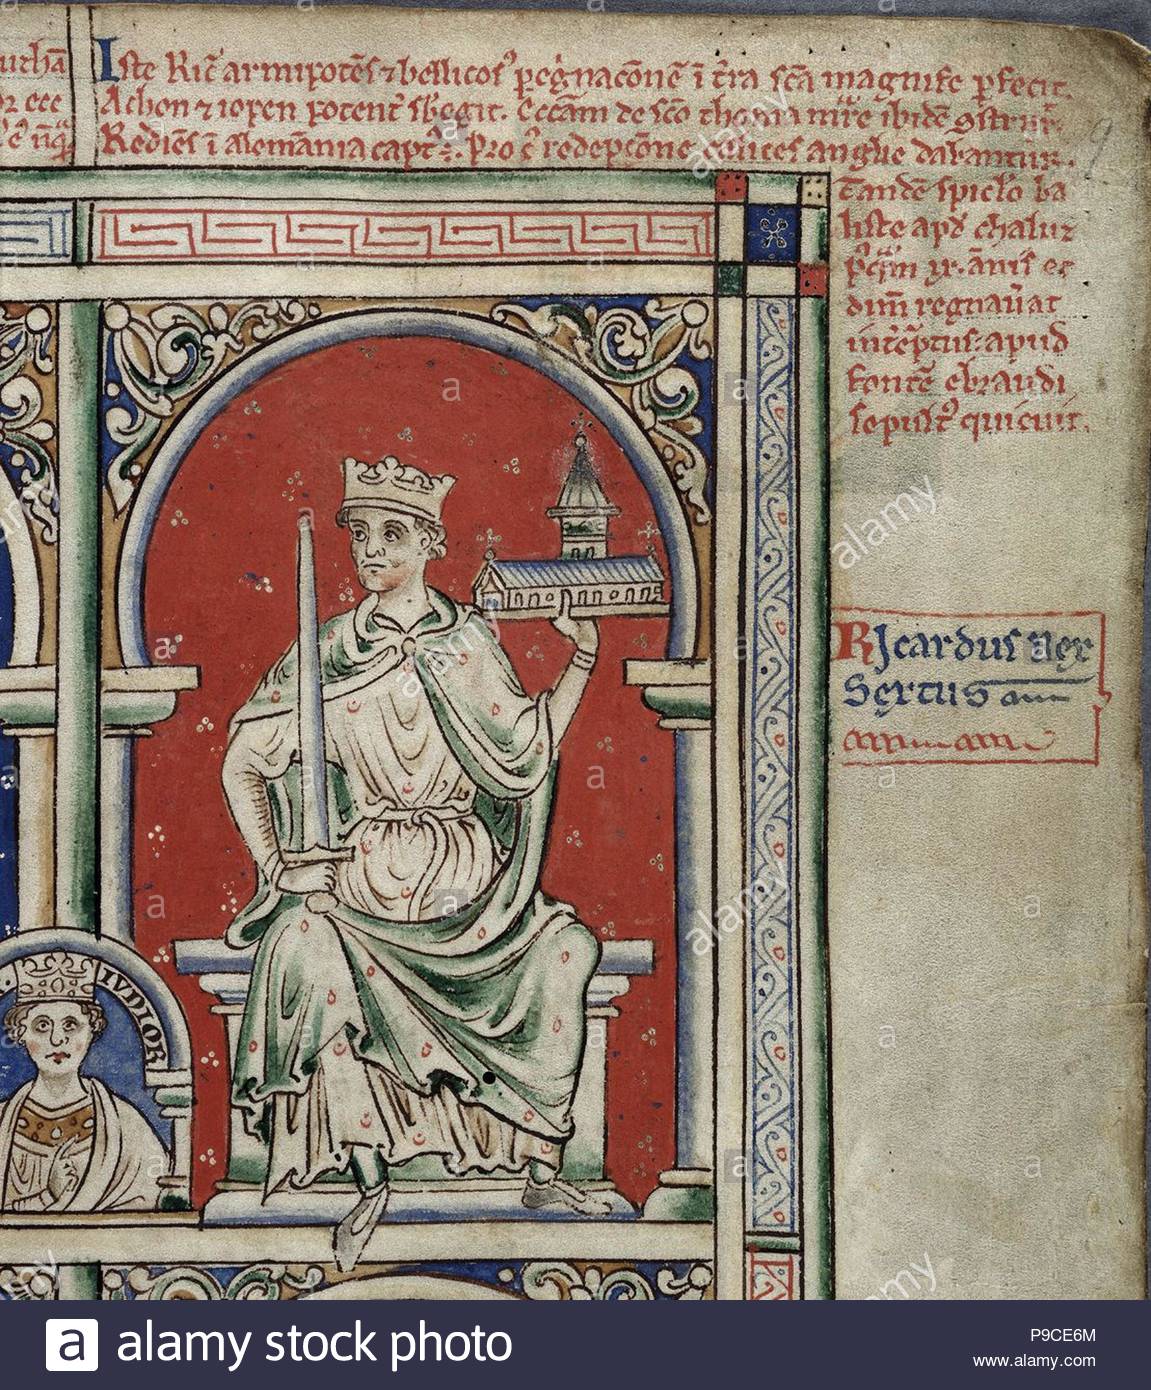 Iste Ric' armipotēs ⁊ bellicos' pegnacōnē ī t'ra scā magnifice pfecit.
Achon ⁊ iopen potent' sbegit. Eccam de sco thoma mre ibidē 9struxᵗ.
Rediēs ī alemannia capt' ÷. Pro c' redempcōne calices anglie dabantur.
Tandē spiclo ba
liste apd chaluz
pqam ix. annis et
dim regnau'at
int'eptus: apud
fontē ebraudi
sepult' quieuit.
Ricardus Rex
Sextus
IVNIOR
a alamy stock photo
P9CE6M
www.alamy.com